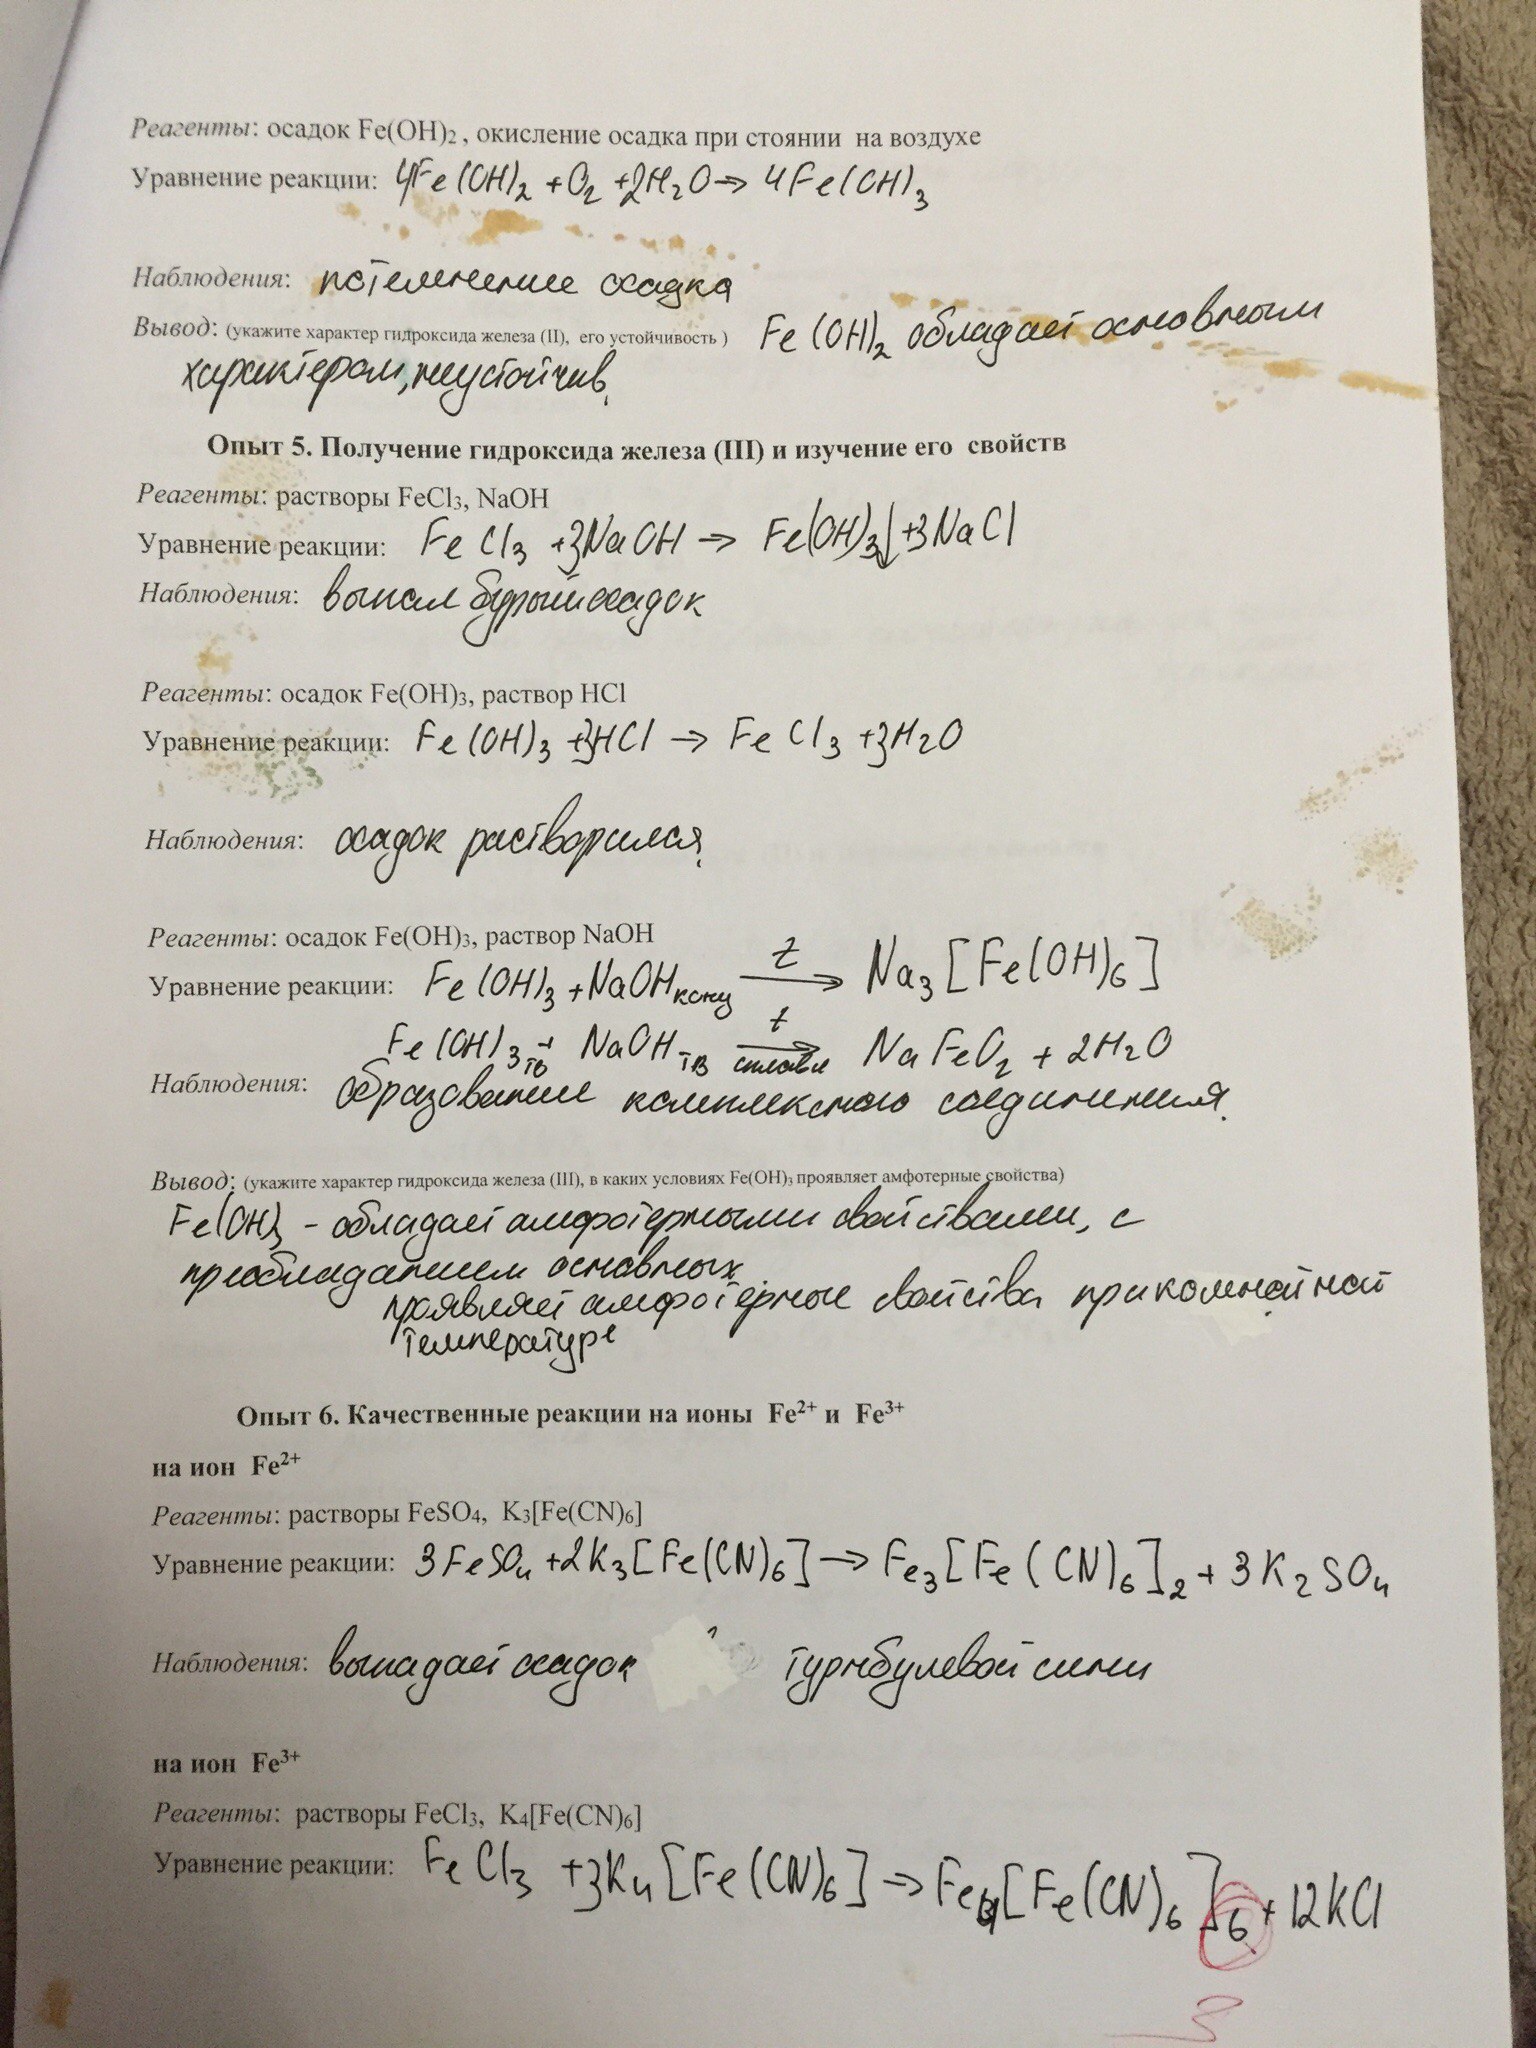 Реагенты: осадок Fe(OH)₂ , окисление осадка при стоянии на воздухе
Уравнение реакции: 4Fe(OH)₂ + O₂ + 2H₂O → 4Fe(OH)₃
Наблюдения: потемнение осадка
Вывод: (укажите характер гидроксида железа (II), его устойчивость ) Fe(OH)₂ обладает основным
характером, неустойчив.
Опыт 5. Получение гидроксида железа (III) и изучение его свойств
Реагенты: растворы FeCl₃, NaOH
Уравнение реакции: FeCl₃ + 3NaOH → Fe(OH)₃↓ + 3NaCl
Наблюдения: выпал бурый осадок
Реагенты: осадок Fe(OH)₃, раствор HCl
Уравнение реакции: Fe(OH)₃ + 3HCl → FeCl₃ + 3H₂O
Наблюдения: осадок растворился.
Реагенты: осадок Fe(OH)₃, раствор NaOH
Уравнение реакции: Fe(OH)₃ + NaOH конц t→ Na₃[Fe(OH)₆]
Fe(OH)₃ тв + NaOH тв t→ сплавл NaFeO₂ + 2H₂O
Наблюдения: образование комплексного соединения.
Вывод: (укажите характер гидроксида железа (III), в каких условиях Fe(OH)₃ проявляет амфотерные свойства)
Fe(OH)₃ - обладает амфотерными свойствами, с
преобладанием основных.
проявляет амфотерные свойства при комнатной
температуре
Опыт 6. Качественные реакции на ионы Fe²⁺ и Fe³⁺
на ион Fe²⁺
Реагенты: растворы FeSO₄, K₃[Fe(CN)₆]
Уравнение реакции: 3FeSO₄ + 2K₃[Fe(CN)₆] → Fe₃[Fe(CN)₆]₂ + 3K₂SO₄
Наблюдения: выпадает осадок турнбулевой сини
на ион Fe³⁺
Реагенты: растворы FeCl₃, K₄[Fe(CN)₆]
Уравнение реакции: FeCl₃ + 3K₄[Fe(CN)₆] → Fe₄[Fe(CN)₆]₆ + 12KCl
3